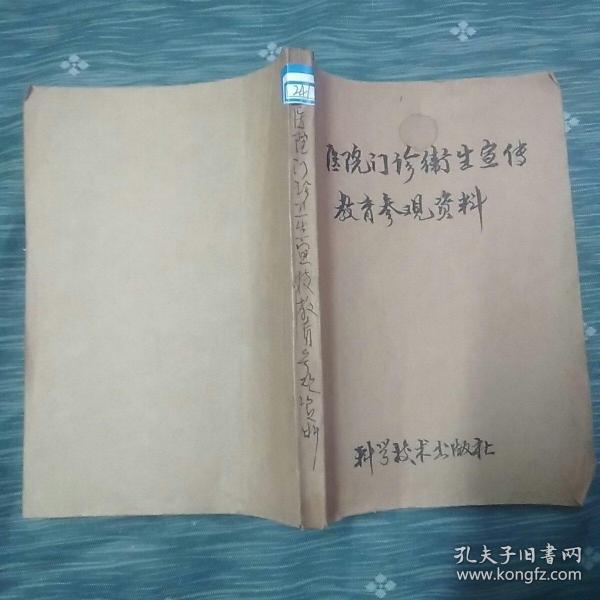 医院门诊衛生宣传
教育参观资料
科学技术出版社
241
医院门诊卫生宣传教育参观资料
孔夫子旧书网
www.kongfz.com